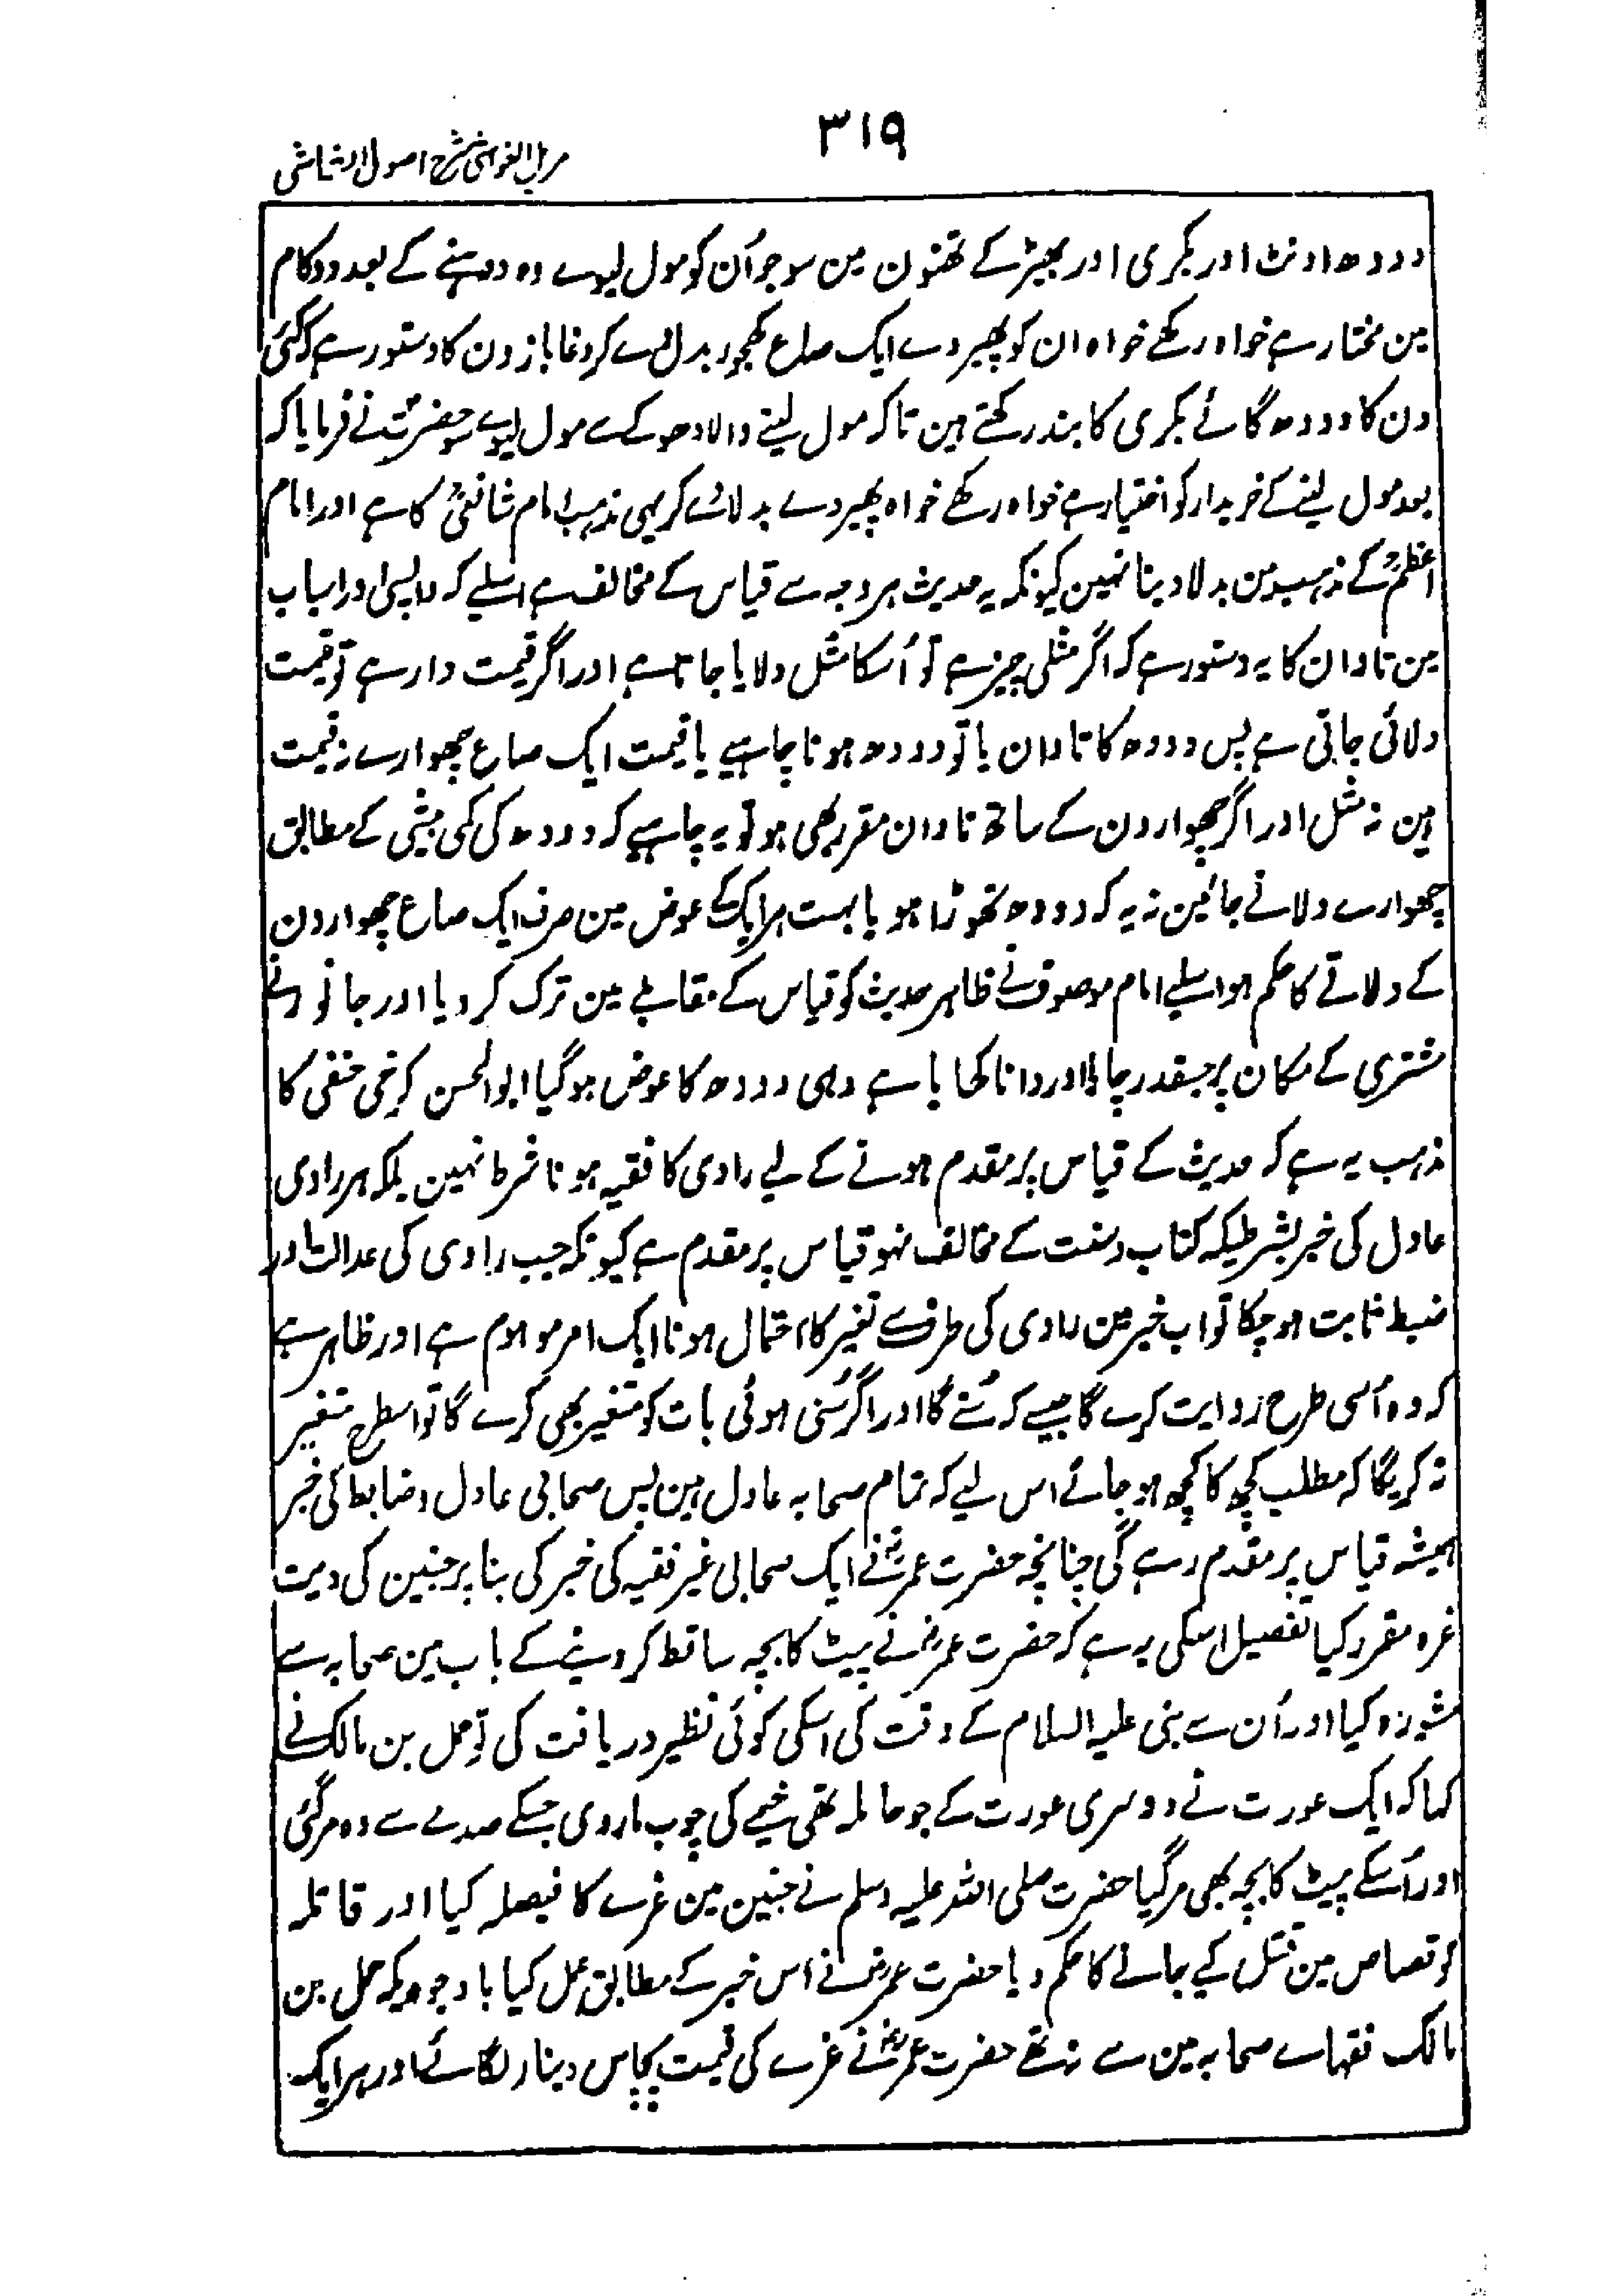 ۳۱۹
مزیل الغواشی شرح اصول الشاشی
دودھ اونٹ اور بکری اور بھیڑ کے تھنون مین سو جو اُن کو مول لیوے وہ دوہنے کے بعد دو کام
مین مختار ہے خواہ رکھے خواہ ان کو پھیر دے ایک صاع کھجور بدل دے کر دغابازون کا دستور ہے کہ کئی
دن کا دودھ گائے بکری کا بند رکھتے ہین تاکہ مول لینے والا دھوکے سے مول لیوے سو حضرتؐ نے فرمایا کہ
بعد مول لینے کے خریدار کو اختیار ہے خواہ رکھے خواہ پھیر دے بدلا دے کر یہی مذہب امام شافعیؒ کا ہے اور امام
اعظمؒ کے مذہب مین بدلا دینا نہین کیونکہ یہ حدیث ہر وجہ سے قیاس کے مخالف ہے اسلیے کہ واپسی اور اسباب
مین تاوان کا یہ دستور ہے کہ اگر مثلی چیز ہے تو اُسکا مثل دلایا جاتا ہے اور اگر قیمت دار ہے تو قیمت
دلائی جاتی ہے پس دودھ کا تاوان یا تو دودھ ہونا چاہیے یا قیمت ایک صاع چھوارے نہ قیمت
ہین نہ مثل اور اگر چھوارون کے ساتھ تاوان مقرر بھی ہو تو یہ چاہیے کہ دودھ کی کمی بیشی کے مطابق
چھوارے دلائے جائین نہ یہ کہ دودھ تھوڑا ہو یا بہت ہر ایک کے عوض مین صرف ایک صاع چھوارون
کے دلانے کا حکم ہو اسلیے امام موصوف نے ظاہر حدیث کو قیاس کے مقابلے مین ترک کر دیا اور جانور نے
مشتری کے مکان پر جسقدر چارا اور دانا کھایا ہے وہی دودھ کا عوض ہو گیا ابوالحسن کرخی حنفی کا
مذہب یہ ہے کہ حدیث کے قیاس پر مقدم ہونے کے لیے راوی کا فقیہ ہونا شرط نہین بلکہ ہر راوی
عادل کی خبر بشرطیکہ کتاب و سنت کے مخالف نہو قیاس پر مقدم ہے کیونکہ جب راوی کی عدالت اور
ضبط ثابت ہو چکا تو اب خبر مین راوی کی طرف سے تغیر کا احتمال ہونا ایک امر موہوم ہے اور ظاہر ہے
کہ وہ اُسی طرح روایت کرے گا جیسے کہ سُنے گا اور اگر سُنی ہوئی بات کو متغیر بھی کرے گا تو اسطرح متغیر
نہ کریگا کہ مطلب کچھ کا کچھ ہو جائے اس لیے کہ تمام صحابہ عادل ہین پس صحابی عادل و ضابط کی خبر
ہمیشہ قیاس پر مقدم رہے گی چنانچہ حضرت عمرؓ نے ایک صحابی غیر فقیہ کی خبر کی بنا پر جنین کی دیت
غرہ مقرر کیا تفصیل اسکی یہ ہے کہ حضرت عمرؓ نے پیٹ کا بچہ ساقط کر دینے کے باب مین صحابہ سے
مشورہ کیا اور اُن سے نبی علیہ السلام کے وقت کی اسکی کوئی نظیر دریافت کی تو حمل بن مالک نے
کہا کہ ایک عورت نے دوسری عورت کے جو حاملہ تھی خیمے کی چوب مار دی جسکے صدمے سے وہ مر گئی
اور اُسکے پیٹ کا بچہ بھی مر گیا حضرت صلی اللہ علیہ وسلم نے جنین مین غرے کا فیصلہ کیا اور قاتلہ
کو قصاص مین قتل کیے جانے کا حکم دیا حضرت عمرؓ نے اس خبر کے مطابق عمل کیا باوجودیکہ حمل بن
مالک فقہاے صحابہ مین سے نہ تھے حضرت عمرؓ نے غرے کی قیمت پچاس دینار لگائے اور ہر ایک